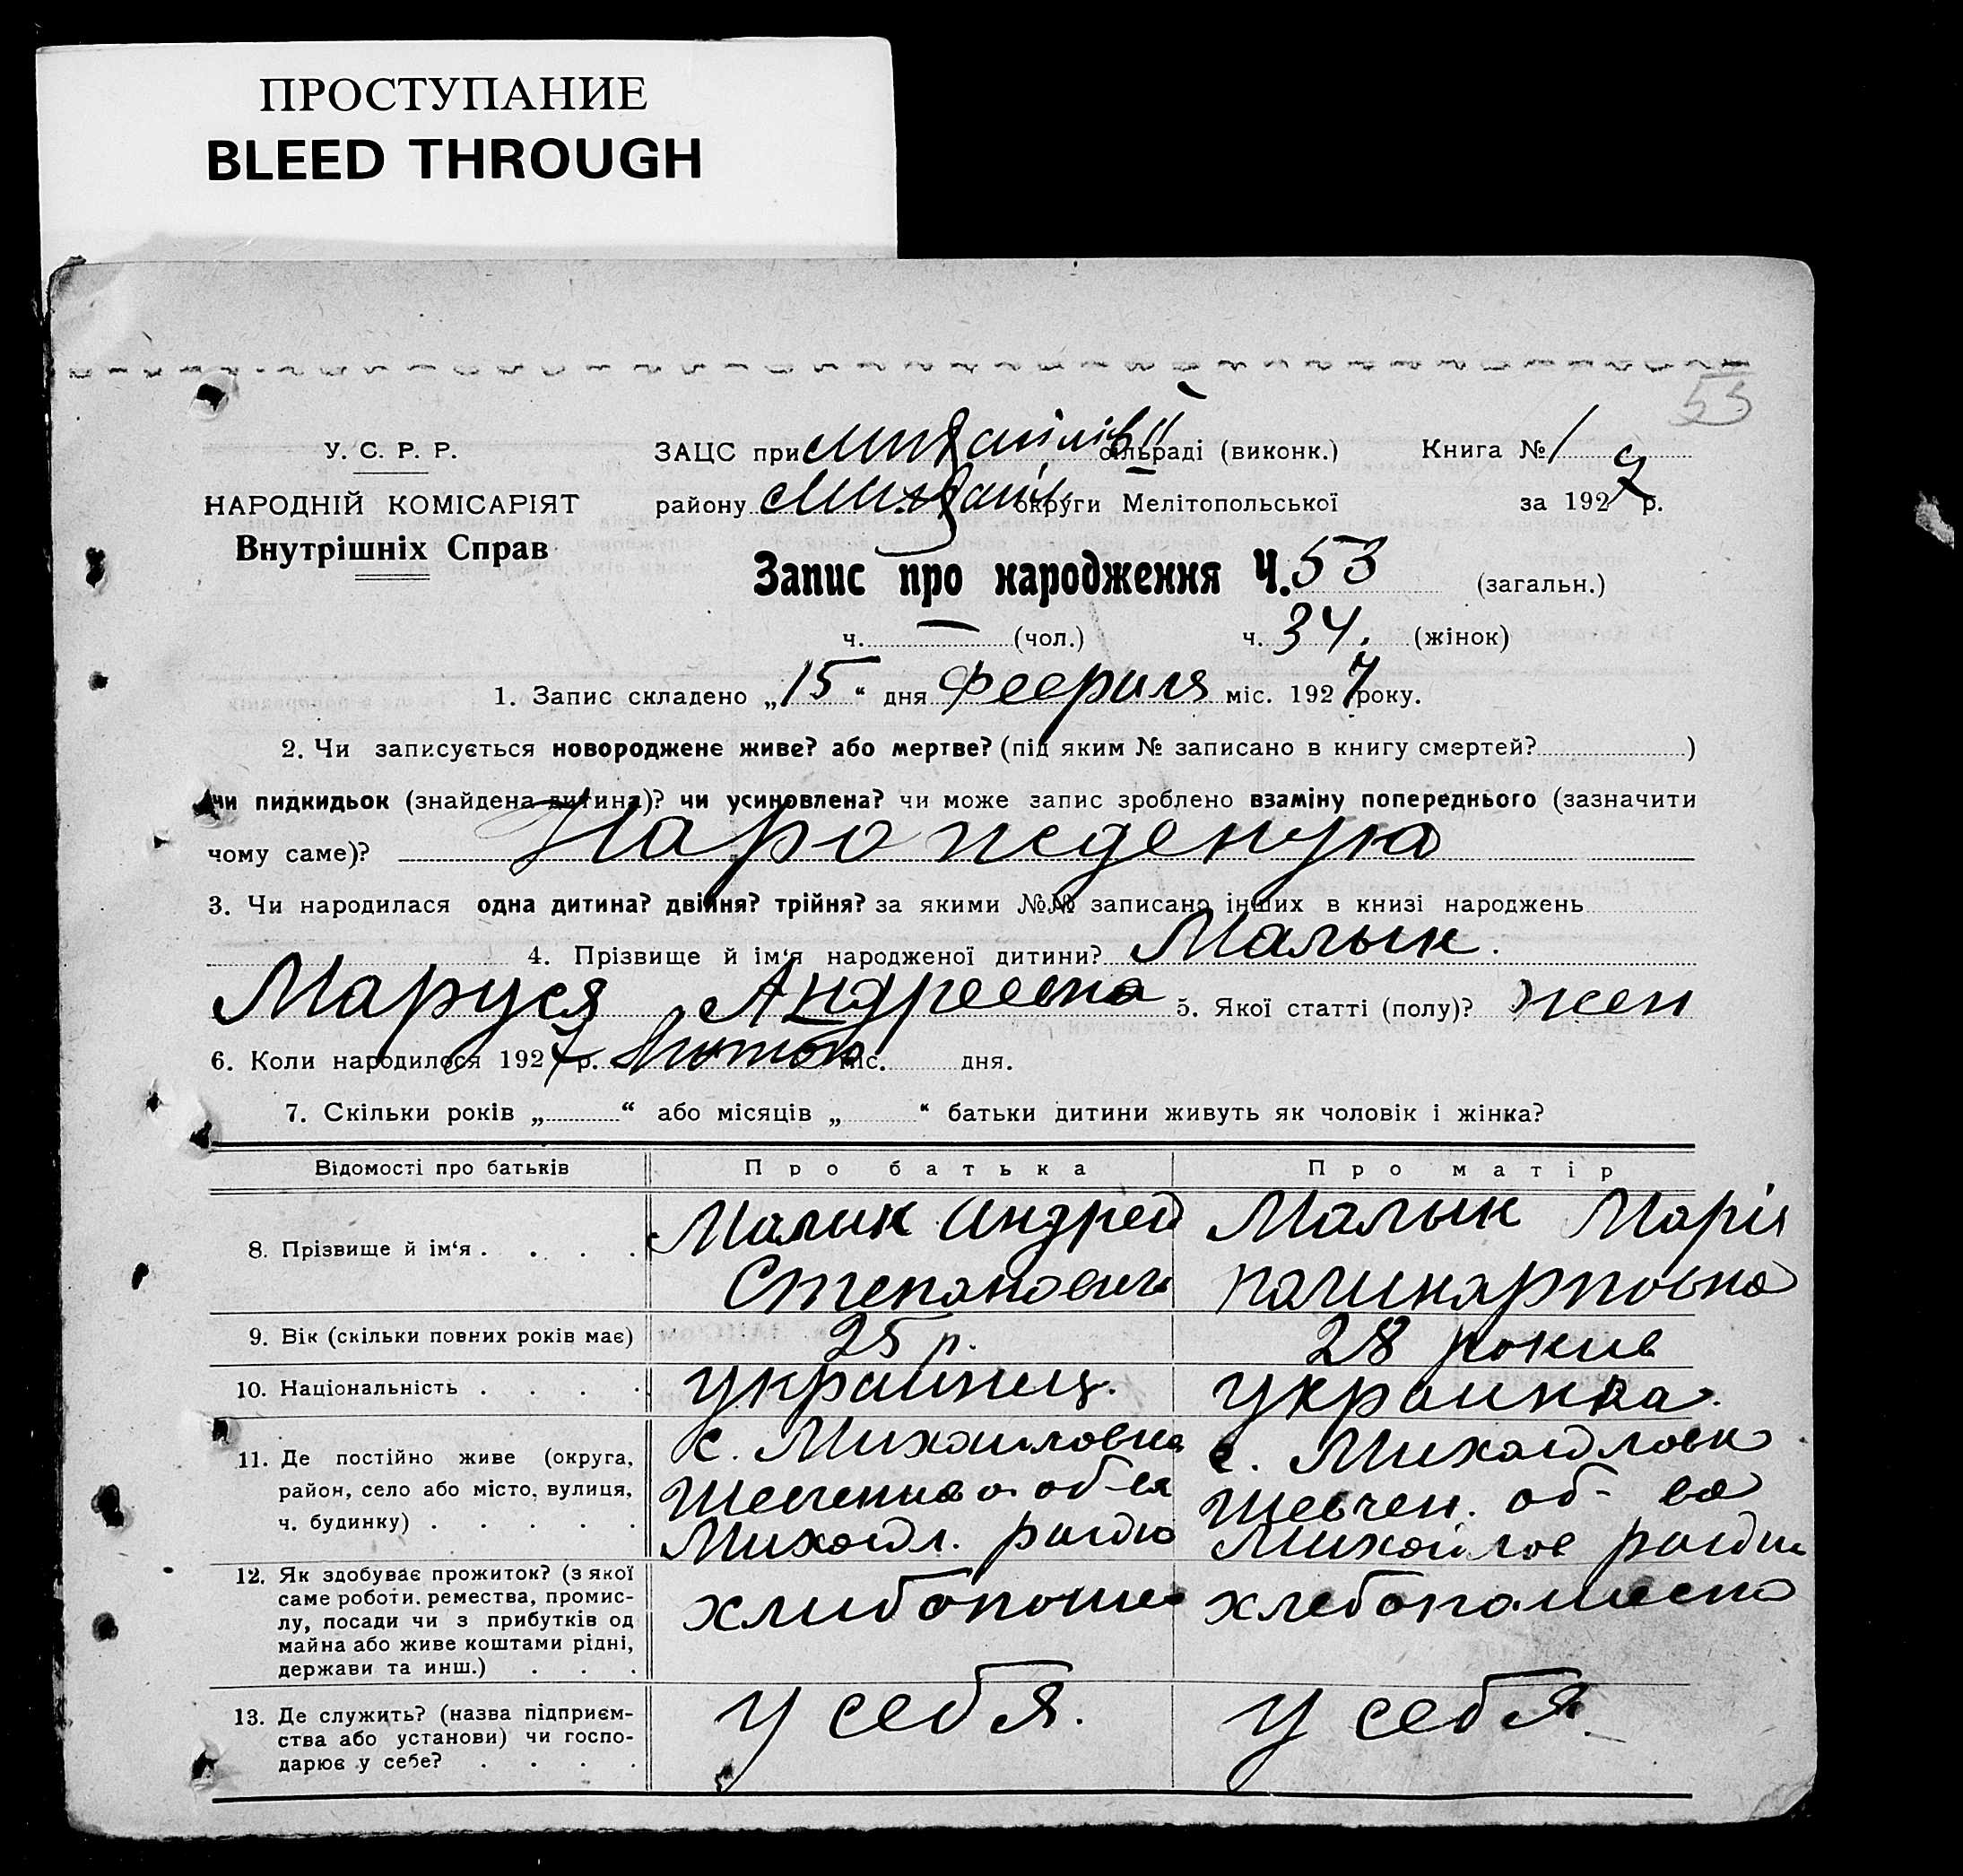 ПРОСТУПАНИЕ
BLEED THROUGH
53
У. С. Р. Р.
ЗАЦС при сільраді (виконк.) Книга № 1
НАРОДНІЙ КОМІСАРІЯТ
району Михайл округи Мелітопольської за 1927 р.
Внутрішніх Справ
Запис про народження Ч. 53 (загальн.)
ч. — (чол.) ч. 34. (жінок)
1. Запис складено „15“ дня Февриля міс. 1927 року.
2. Чи записується новороджене живе? або мертве? (під яким № записано в книгу смертей? )
чи пидкидьок (знайдена дитина)? чи усиновлена? чи може запис зроблено взаміну попереднього (зазначити
чому саме)? Нарожденую
3. Чи народилася одна дитина? двійня? трійня? за якими №№ записано інших в книзі народжень
4. Прізвище й ім'я народженої дитини? Малык.
Маруся Андреевна 5. Якої статті (полу)? жен
6. Коли народилося 1927 р. Лютого міс. дня.
7. Скільки років „ “ або місяців „ “ батьки дитини живуть як чоловік і жінка?
Відомості про батьків Про батька Про матір
8. Прізвище й ім'я . . . . Малик Андрей Малык Марія
Степанович
9. Вік (скільки повних років має) 25 р. 28 рокив
10. Національність . . . . украинец. украинка.
11. Де постійно живе (округа, район, село або місто, вулиця, ч. будинку) . . . . .
с. Михайловка с. Михайловк
об-ва Шевчен. об-ва
Михайл. район Михайлов район
12. Як здобуває прожиток? (з якої саме роботи, ремества, промислу, посади чи з прибутків од майна або живе коштами рідні, держави та инш.) . . .
13. Де служить? (назва підприємства або установи) чи господарює у себе? . . . .
у себя. у себя.